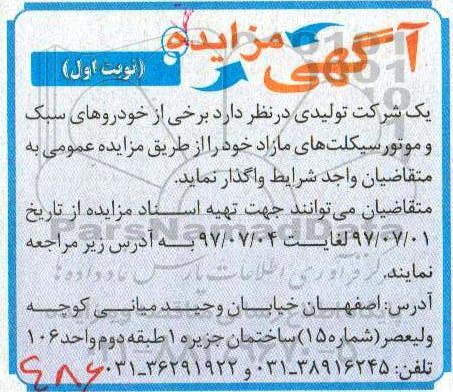 آگهی مزایده
(نوبت اول)
یک شرکت تولیدی درنظر دارد برخی از خودروهای سبک
و موتورسیکلت‌های مازاد خود را از طریق مزایده عمومی به
متقاضیان واجد شرایط واگذار نماید.
متقاضیان می‌توانند جهت تهیه اسناد مزایده از تاریخ
۹۷/۰۷/۰۱ لغایت ۹۷/۰۷/۰۴ به آدرس زیر مراجعه
نمایند.
آدرس: اصفهان خیابان وحید میانی کوچه
ولیعصر (شماره۱۵) ساختمان جزیره ۱ طبقه دوم واحد ۱۰۶
تلفن: ۳۸۹۱۶۲۴۵-۰۳۱ و ۳۶۲۹۱۹۲۲-۰۳۱
ParsNamadData